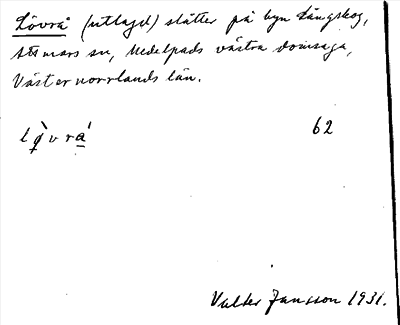 Lövrå (utlagd) slåtter på byn Långskog,
Attmars sn, Medelpads västra domsaga,
Västernorrlands län.
lǫ̀vrá 62
Valter Jansson 1931.